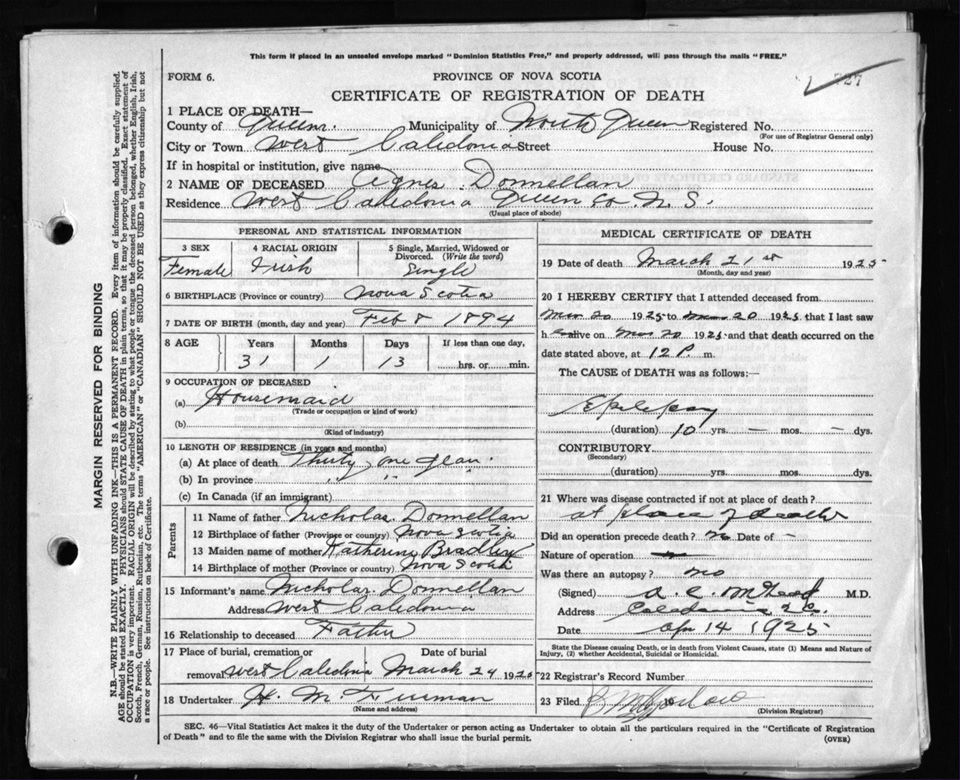 This form if placed in an unsealed envelope marked "Dominion Statistics Free," and properly addressed, will pass through the mails "FREE."
FORM 6.
PROVINCE OF NOVA SCOTIA
727
CERTIFICATE OF REGISTRATION OF DEATH
1 PLACE OF DEATH—
County of Queens. Municipality of North Queen Registered No.
(For use of Registrar General only)
City or Town West Caledonia Street House No.
If in hospital or institution, give name
2 NAME OF DECEASED Agnes Donnellan
Residence West Caledonia Queen Co. N. S.
(Usual place of abode)
PERSONAL AND STATISTICAL INFORMATION
3 SEX 4 RACIAL ORIGIN 5 Single, Married, Widowed or Divorced. (Write the word)
Female Irish Single
6 BIRTHPLACE (Province or country) Nova Scotia
7 DATE OF BIRTH (month, day and year) Feb 8 1894
8 AGE Years Months Days If less than one day,
31 1 13 hrs. or min.
9 OCCUPATION OF DECEASED
(a) Housemaid
(Trade or occupation or kind of work)
(b)
(Kind of industry)
10 LENGTH OF RESIDENCE (in years and months)
(a) At place of death Thirty one years
(b) In province " "
(c) In Canada (if an immigrant)
Parents
11 Name of father Nicholas Donnellan
12 Birthplace of father (Province or country) Nova Scotia
13 Maiden name of mother Katherine Bradley
14 Birthplace of mother (Province or country) Nova Scotia
15 Informant's name Nicholas Donnellan
Address West Caledonia
16 Relationship to deceased Father
17 Place of burial, cremation or removal Date of burial
West Caledonia March 24 1925
18 Undertaker H. M. Freeman
(Name and address)
MEDICAL CERTIFICATE OF DEATH
19 Date of death March 21st 1925
(Month, day and year)
20 I HEREBY CERTIFY that I attended deceased from
Mar 20 1925 to Mar 20 1925 that I last saw
h alive on Mar 20 1925 and that death occurred on the
date stated above, at 12 P. m.
The CAUSE of DEATH was as follows:—
Epilepsy
(duration) 10 yrs. — mos. — dys.
CONTRIBUTORY
(Secondary)
(duration) yrs. mos. dys.
21 Where was disease contracted if not at place of death?
at place of death
Did an operation precede death? no Date of —
Nature of operation —
Was there an autopsy? no
(Signed) A. C. M.D.
Address Caledonia
Date Apr 14 1925
State the Disease causing Death, or in death from Violent Causes, state (1) Means and Nature of Injury, (2) whether Accidental, Suicidal or Homicidal.
22 Registrar's Record Number
23 Filed
(Division Registrar)
SEC. 46—Vital Statistics Act makes it the duty of the Undertaker or person acting as Undertaker to obtain all the particulars required in the "Certificate of Registration
of Death" and to file the same with the Division Registrar who shall issue the burial permit.
(OVER)
MARGIN RESERVED FOR BINDING
N.B.—WRITE PLAINLY WITH UNFADING INK—THIS IS A PERMANENT RECORD. Every item of information should be carefully supplied.
AGE should be stated EXACTLY. PHYSICIANS should STATE CAUSE OF DEATH in plain terms, so that it may be properly classified. Exact statement of
OCCUPATION is very important. RACIAL ORIGIN will be described by stating to what people or tongue the deceased person belonged, whether English, Irish,
Scotch, French, German, Russian, Ruthenian, etc. The terms "AMERICAN" or "CANADIAN" SHOULD NOT BE USED as they express citizenship but not
a race or people. See instructions on back of Certificate.